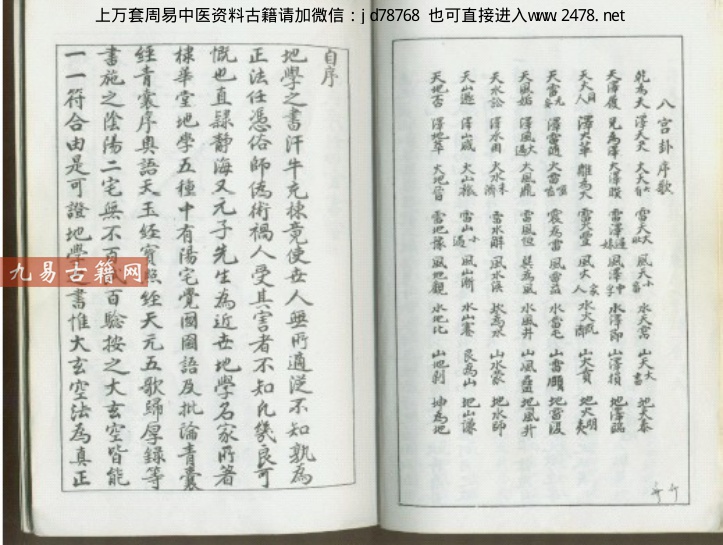 上万套周易中医资料古籍请加微信：jd78768 也可直接进入www.2478.net
八宫卦序歌
乾為天 澤天夬 火天大有 雷天大壯 風天小畜 水天需 山天大畜 地天泰
天澤履 兌為澤 火澤睽 雷澤歸妹 風澤中孚 水澤節 山澤損 地澤臨
天火同人 澤火革 離為火 雷火豐 風火家人 水火既濟 山火賁 地火明夷
天雷无妄 澤雷隨 火雷噬嗑 震為雷 風雷益 水雷屯 山雷頤 地雷復
天風姤 澤風大過 火風鼎 雷風恒 巽為風 水風井 山風蠱 地風升
天水訟 澤水困 火水未濟 雷水解 風水渙 坎為水 山水蒙 地水師
天山遯 澤山咸 火山旅 雷山小過 風山漸 水山蹇 艮為山 地山謙
天地否 澤地萃 火地晉 雷地豫 風地觀 水地比 山地剝 坤為地
自序
地學之書汗牛充棟竟使世人無所適從不知孰為
正法任憑俗師偽術禍人受其害者不知凡幾良可
慨也直隸靜海又元子先生為近世地學名家所著
棣華堂地學五種中有陽宅覺園語及批論青囊
經青囊序奧語天玉經寶照經天元五歌歸厚錄等
書施之陰陽二宅無不百試百驗按之大玄空皆能
一一符合由是可證地學之書惟大玄空法為真正
九易古籍网